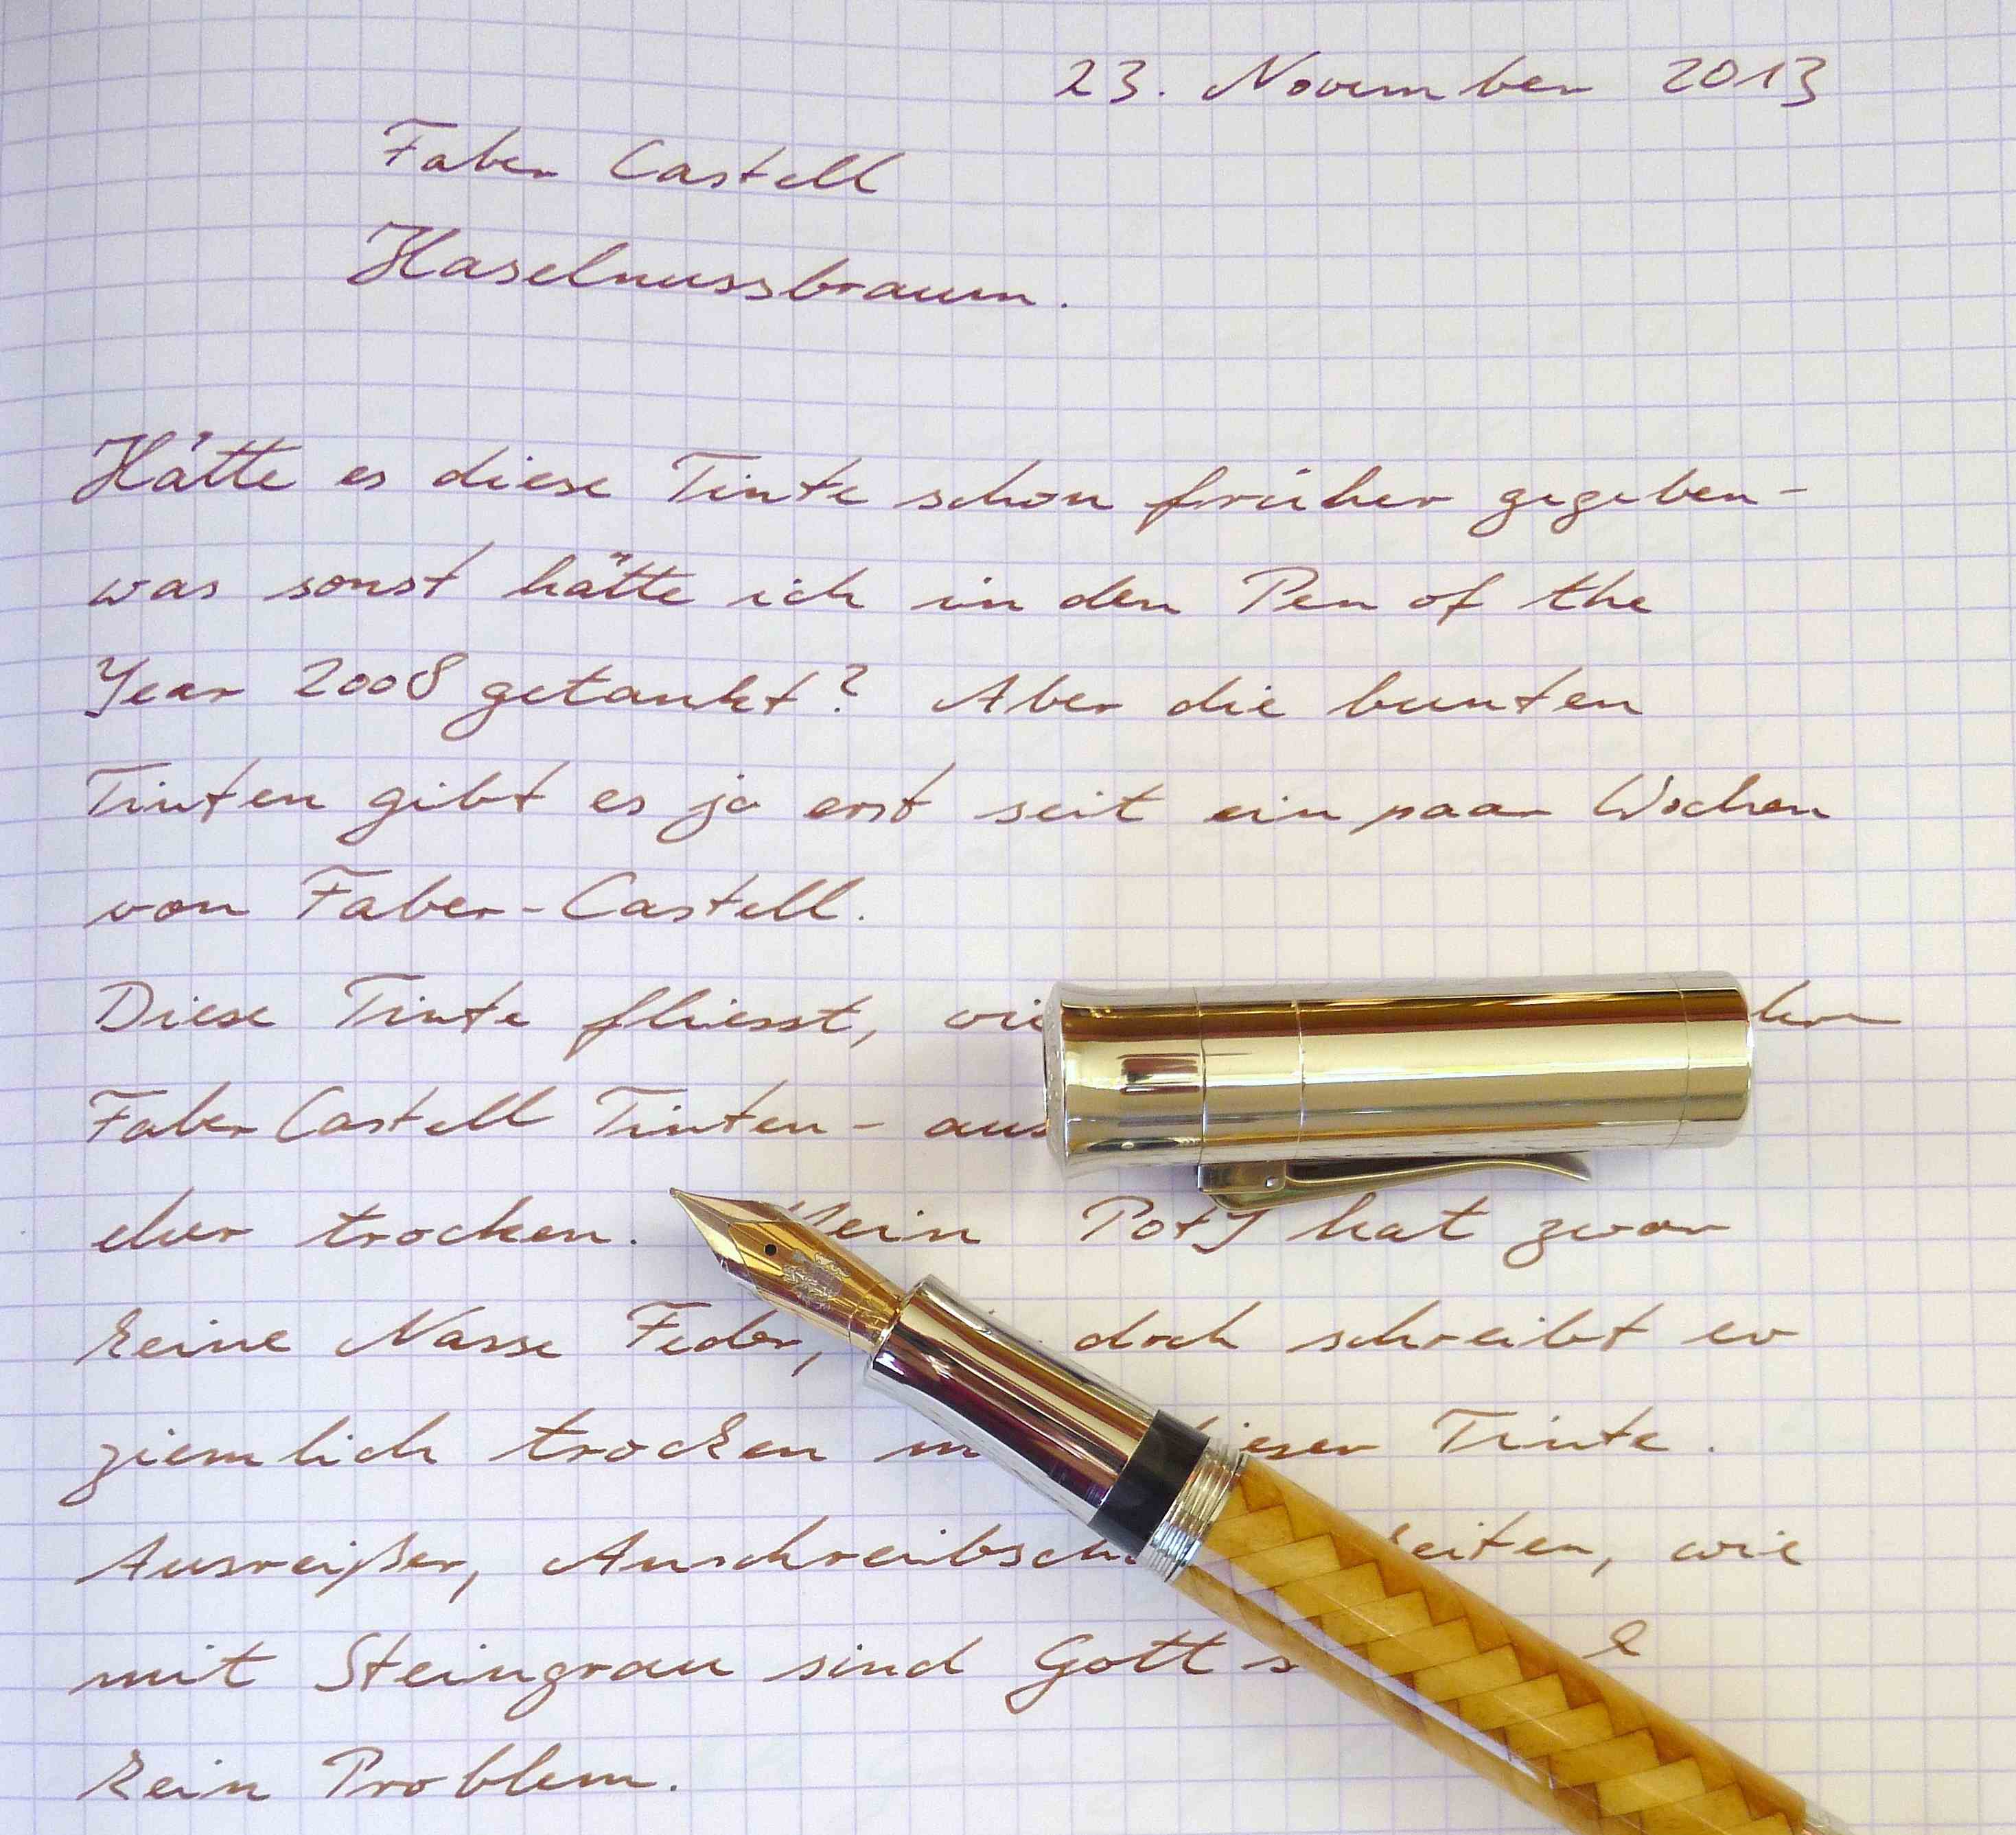 23. November 2013
Faber Castell
Haselnussbraun.
Hätte es diese Tinte schon früher gegeben-
was sonst hätte ich in den Pen of the
Year 2008 getankt? Aber die bunten
Tinten gibt es ja erst seit ein paar Wochen
von Faber-Castell.
Diese Tinte fliesst,
Faber Castell Tinten -
eher trocken. Mein PotY hat zwar
keine Nasse Feder, doch schreibt er
ziemlich trocken dieser Tinte.
Ausreißer, wie
mit Steingrau sind Gott
kein Problem.